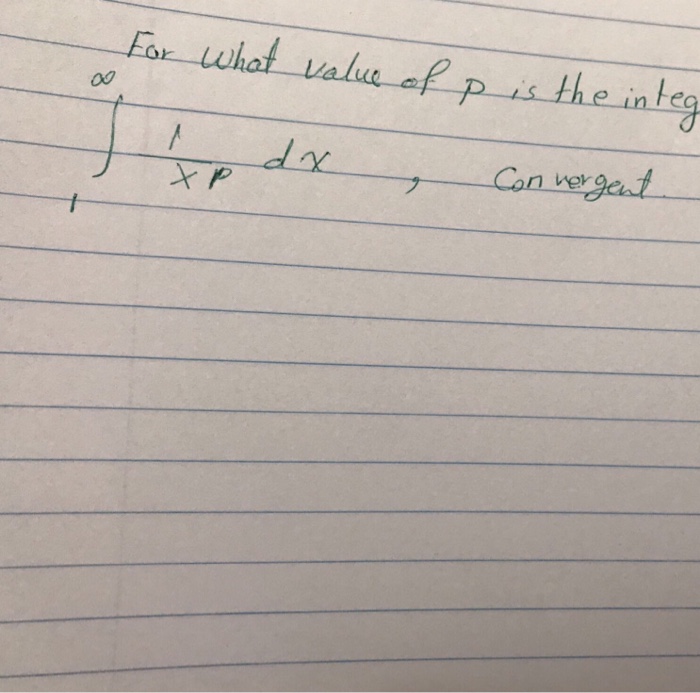 For what value of p is the integ
∞
∫ 1/xp dx , Convergent.
1